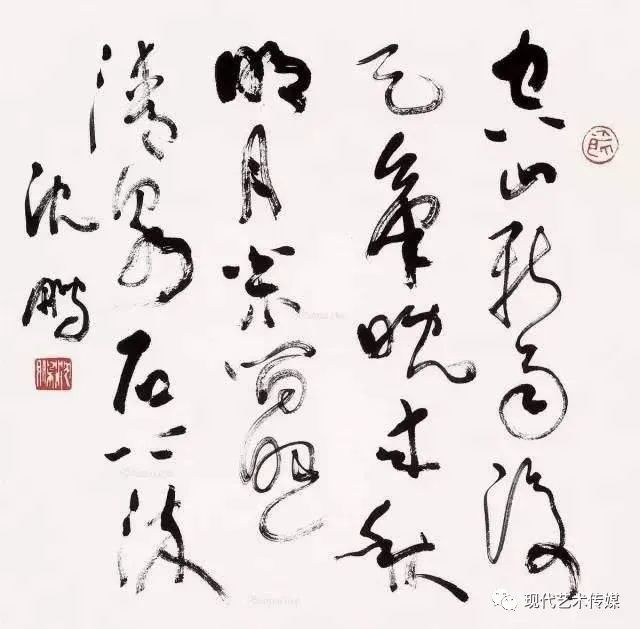 空山新雨後
天氣晚来秋
明月松間照
清泉石上流
沈鹏
现代艺术传媒